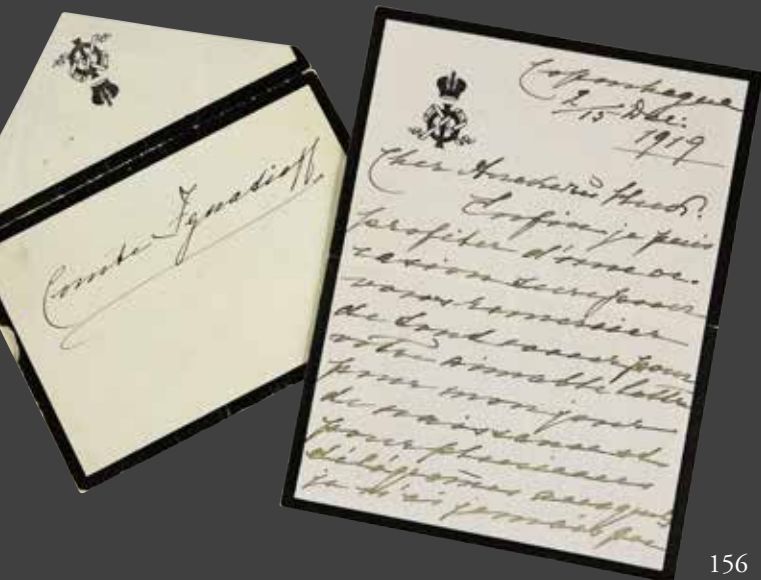 Comte Ignatieff
Copenhague
2/15 Dec:
1919
Cher
Enfin je puis
profiter d'une oc-
casion sure pour
vous remercier
de tout coeur pour
votre aimable lettre
pour mon jour
de naissance et
pour plusieurs
télégrammes auxquels
je n'ai jamais pu
156